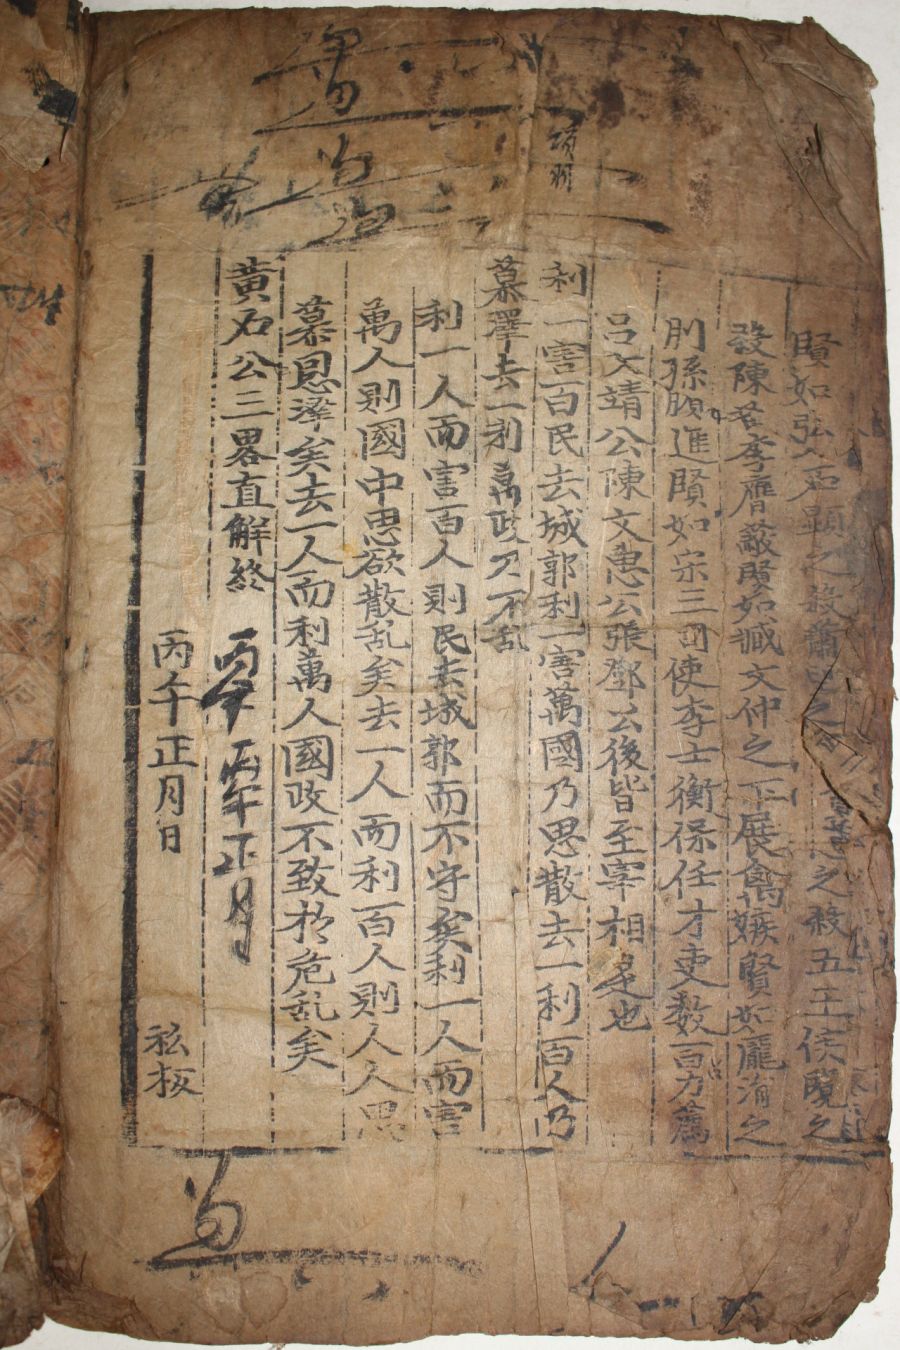 賢如弘㳟石顯之殺蕭望之 曹節之殺五王侯覽之
殺陳蕃李膺蔽賢如臧文仲之下展禽嫉賢如龐涓之
刖孫臏進賢如宋三司使李士衡保任才吏數百力薦
呂文靖公陳文惠公張鄧公後皆至宰相是也
利一害百民去城郭利一害萬國乃思散去一利百人乃
慕澤去一利萬政乃不乱
利一人而害百人則民去城郭而不守矣利一人而害
萬人則國中思欲散乱矣去一人而利百人則人人思
慕恩澤矣去一人而利萬人國政不致於危乱矣
黃石公三畧直解終 丙午 丙午正月
丙午正月日 私板
項羽